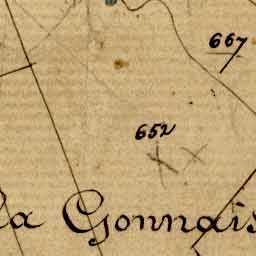 667
652
la Gonnais